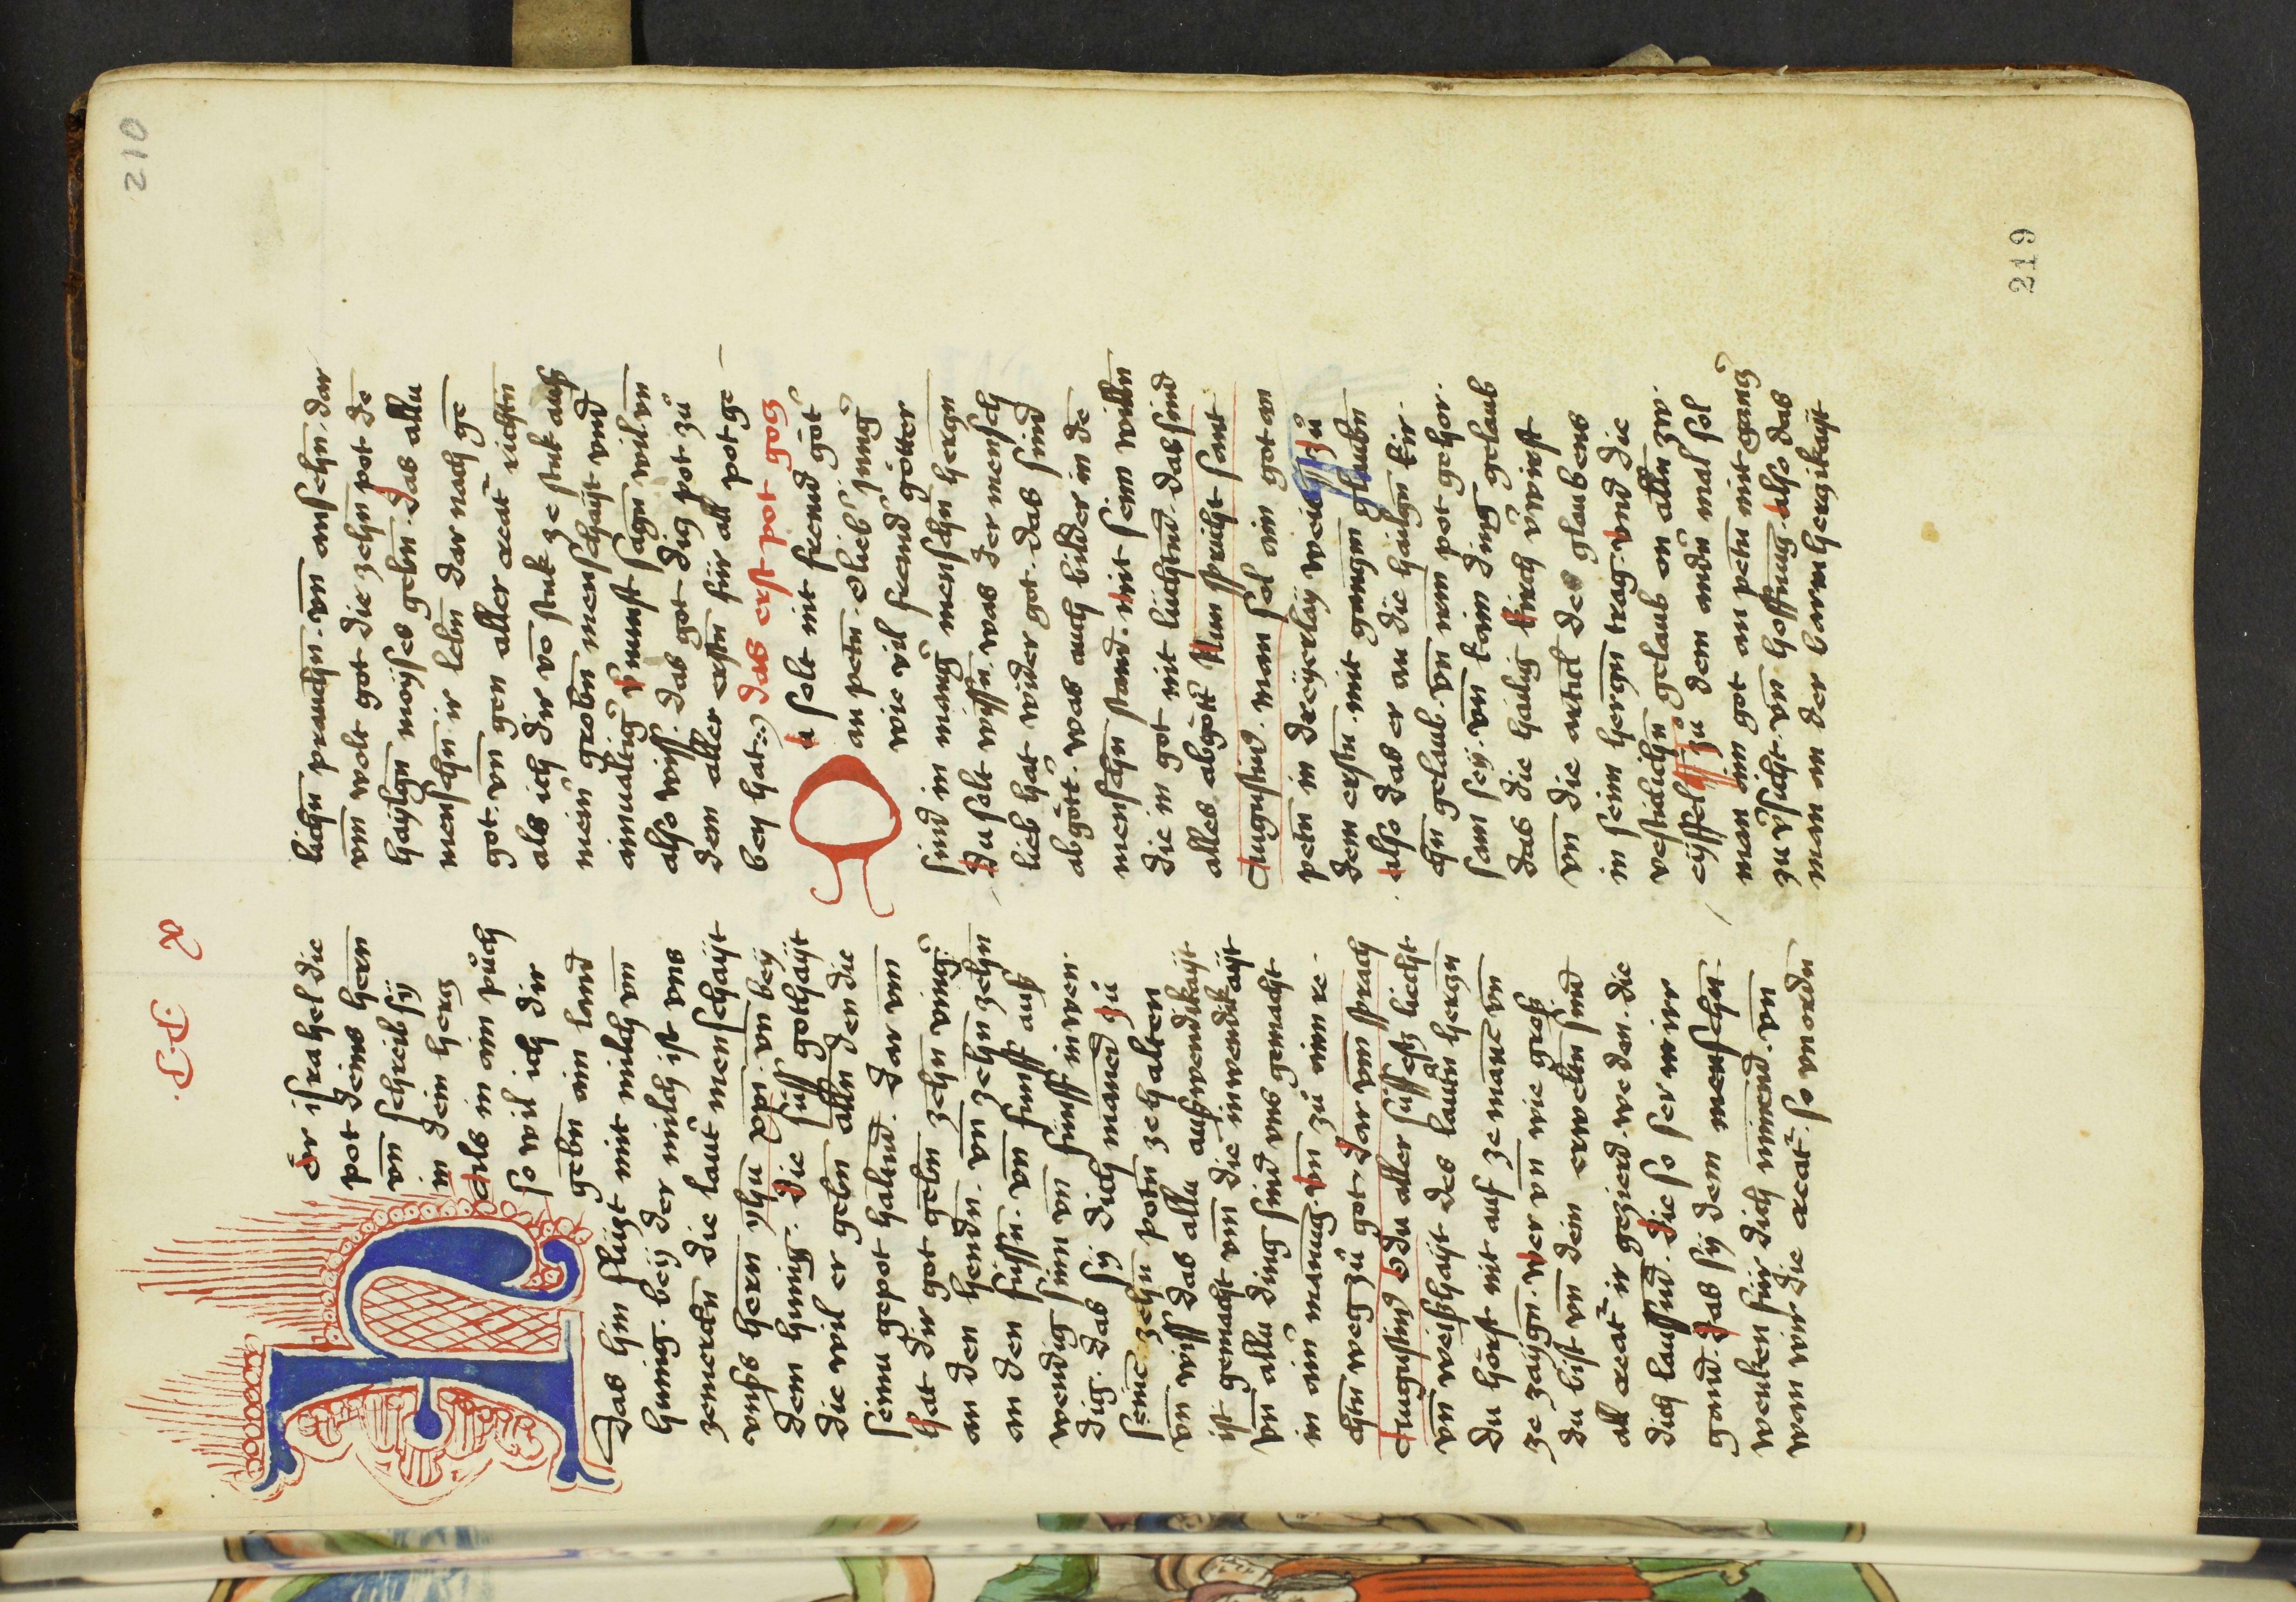 210
CC x
Hör israhel die
pot deins herrn
vn̄ schreib sÿ
in dein hercz
als in ain půch
so wil ich dir
gebn̄ ain land
das hin fliüzt mit milch vn̄
hūnig. beÿ der milch ist vns
zemerckn̄ die laut̾ menschaÿt
vnsers hern yhu xpi. vn̄ beÿ
dem hūnig. die süss gothaÿt
die wil er gebn̄ alln̄ den die
seinu gepot haltnd. Dar vm
hat dir got gebn̄ zehn̄ ving̾
an den hendn̄. vn̄ zehn̄ zehn̄
an den füssn̄. vn̄ fünff auß
wendig sinn vn̄ fünff inwen.
dig. das sÿ dich maned zů
seinē zehn̄ potn̄ ze halten
vn̄ wiss das allu außwendikaÿt
ist gemacht vm̄ die inwendikaÿt
vn̄ allu ding sind vns gemacht
in ain̾ manug vn̄ zů aim re-
chtn̄ weg zů got. Dar vm̄ sprach
Augustin9 O du aller süssestz liecht
vn̄ weißhaÿt des lautn̄ herczn̄
du hörst nit auf ze manē vn̄
ze zaÿgn̄. wer vn̄ wie groß
du bist vn̄ dein erweltn̄ sind
all creat̾ ir gezierd. we den. die
dich laussnd. die so fer in irr
gand. das sÿ dem menschn̄.
wenken für dich nimend. vn̄
wan wir die creat̾. so vnordn̄
lichn̄ prauchn̄. vn̄ ansehn̄. dar
vm̄ wolt got die zehn̄ pot dē
haÿlgn̄ moÿses gebn̄. das allu
menschn̄ ir lebn̄ dar nach ge
got. vn̄ gen aller creat̾ richtn̄
als ich dir vō stuk ze stuk auß
mein̾ grobn̄ menschaÿt vnd
ainualtig̾ v̾nunft sagn̄ wil. vn̄
also wiss. das got dis pot zů
dem aller erstn̄ für all pot ge
bey hat. das erst pot gocz
Du solt nit fremd göt̾
an petn̄. O lieb̾ jung̾
wie vil fremd̾ götter
sind in mang̾ menschn̄ herczn̄
Du solt wissn̄. was der mensch
lieb hat wider got. das sind
abgött̾. was auch bilder in dē
menschn̄ stand. mit seim willn̄
die in got nit lüchtnd. das sind
alles abgött̾ Nun spricht sant
Augustin9. man sol ain got an
petn̄ in dreÿerlaÿ weiß zů
dem erstn̄. mit ganczm glaubn̄
Also das er an die hailgn̄ kir.
chn̄ gelaub. vn̄ irm pot gehor.
sam seÿ. vn̄ kain ding gelaub
das die hailig kirch v̾wirft
vn̄ die artikl des glaubens
in seim herczn̄ trag. vnd die
vestiklichn̄ gelaub on alln̄ zw.
eÿffel zů dem andn̄ mal sol
man ain got an petn̄ mit gancz̾
zu v̾sicht. vn̄ hoffnūg. also das
man an der barmherczikaÿt
219